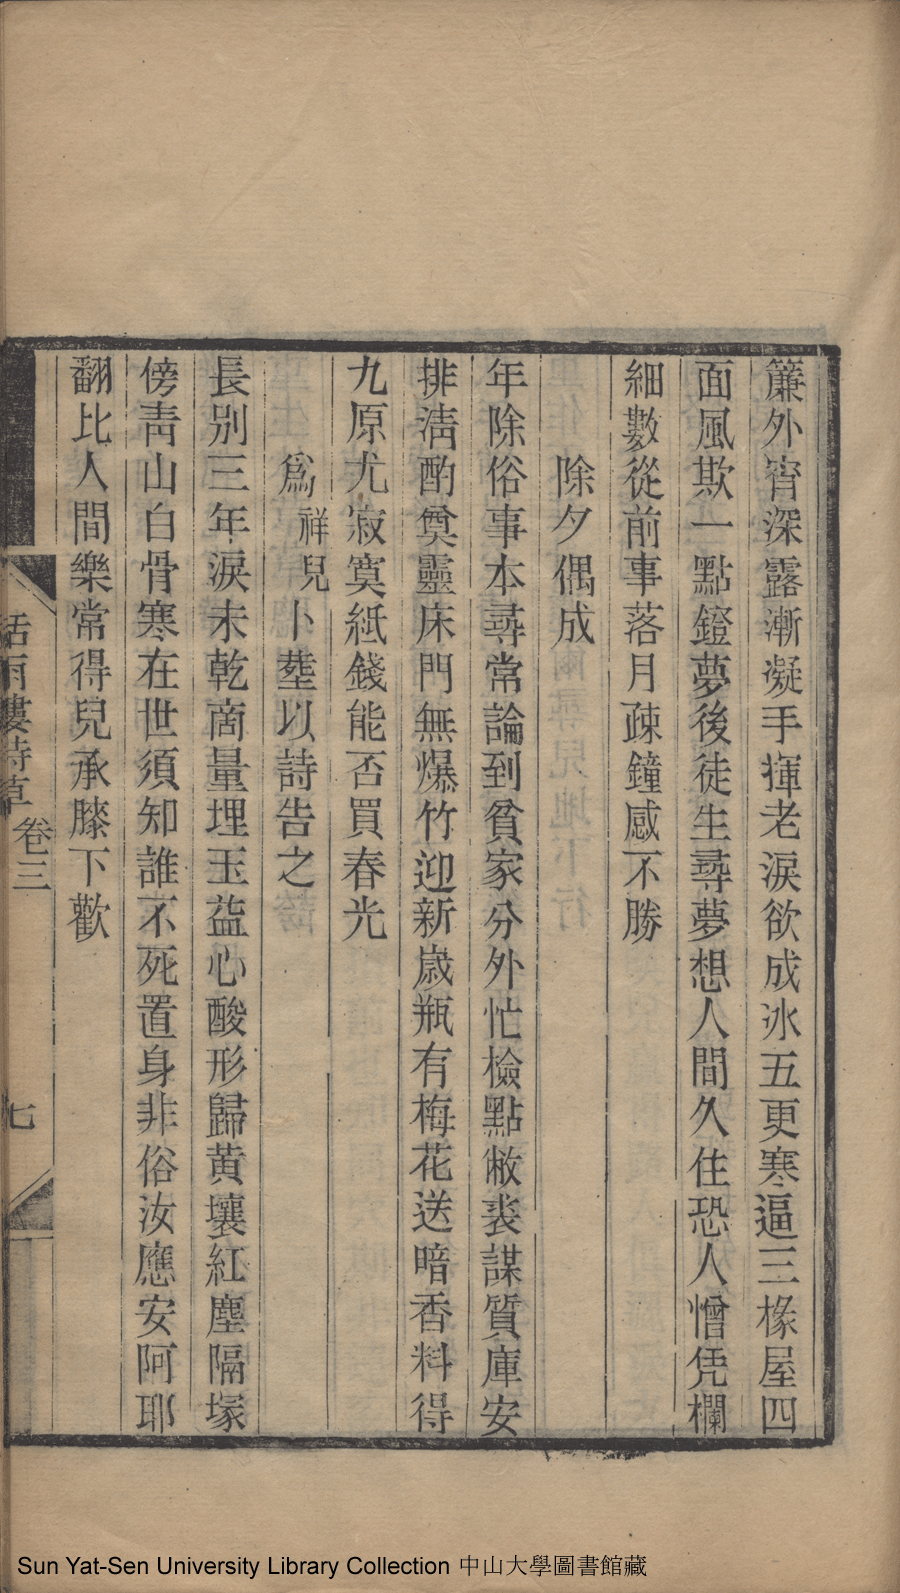 簾外宵深露漸凝手揮老淚欲成冰五更寒逼三椽屋四
面風欺一點鐙夢後徒生尋夢想人間久住恐人憎凭欄
細數從前事落月疎鐘感不勝
除夕偶成
年除俗事本尋常論到貧家分外忙檢點敝裘謀質庫安
排淸酌奠靈床門無爆竹迎新歲瓶有梅花送暗香料得
九原尤寂寞紙錢能否買春光
爲祥兒卜塟以詩告之
長别三年淚未乾商量埋玉益心酸形歸黄壤紅塵隔塚
傍靑山白骨寒在世須知誰不死置身非俗汝應安阿耶
翻比人間樂常得兒承膝下歡
話雨樓詩草 卷三
七
Sun Yat-Sen University Library Collection 中山大學圖書館藏